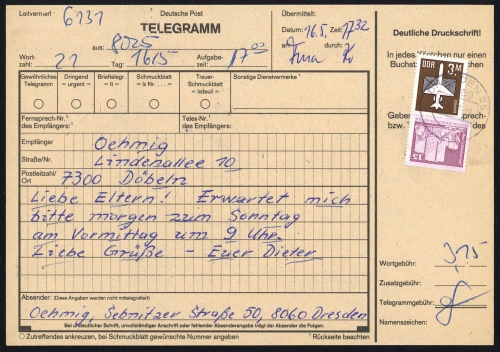 Leitvermerk: 6131
Deutsche Post
TELEGRAMM
aus: 8025
Wortzahl: 22
Tag: 16/5
Aufgabezeit: 17 03
Übermittelt:
Datum: 16.5. Zeit: 1732
am:
durch:
Deutliche Druckschrift!
In jedes Kästchen nur einen
Buchst
Geben
prech-
bzw.
Gewöhnliches Telegramm
Dringend = urgent =
Brieftelegr. = lt =
Schmuckblatt = lx Nr. ... =
Trauer-Schmuckblatt = lxdeuil =
Sonstige Dienstvermerke ¹
Fernsprech-Nr. ¹ des Empfängers:
Telex-Nr. ¹ des Empfängers:
Empfänger Oehmig
Straße/Nr. Lindenallee 10
Postleitzahl/Ort 7300 Döbeln
Liebe Eltern! Erwartet mich
bitte morgen zum Sonntag
am Vormittag um 9 Uhr.
Liebe Grüße – Euer Dieter
DDR 3 M
15
Wortgebühr: 3,15
Zusatzgebühr:
Telegrammgebühr:
Namenszeichen:
Absender: (Diese Angaben werden nicht mittelegrafiert)
Oehmig, Sebnitzer Straße 50, 8060 Dresden
Bei undeutlicher Druckschrift, unvollständiger Anschrift oder fehlender Absenderangabe trägt der Absender die Folgen.
○ Zutreffendes ankreuzen, bei Schmuckblattelegramm gewünschte Nummer eintragen. ¹ Rückseite beachten